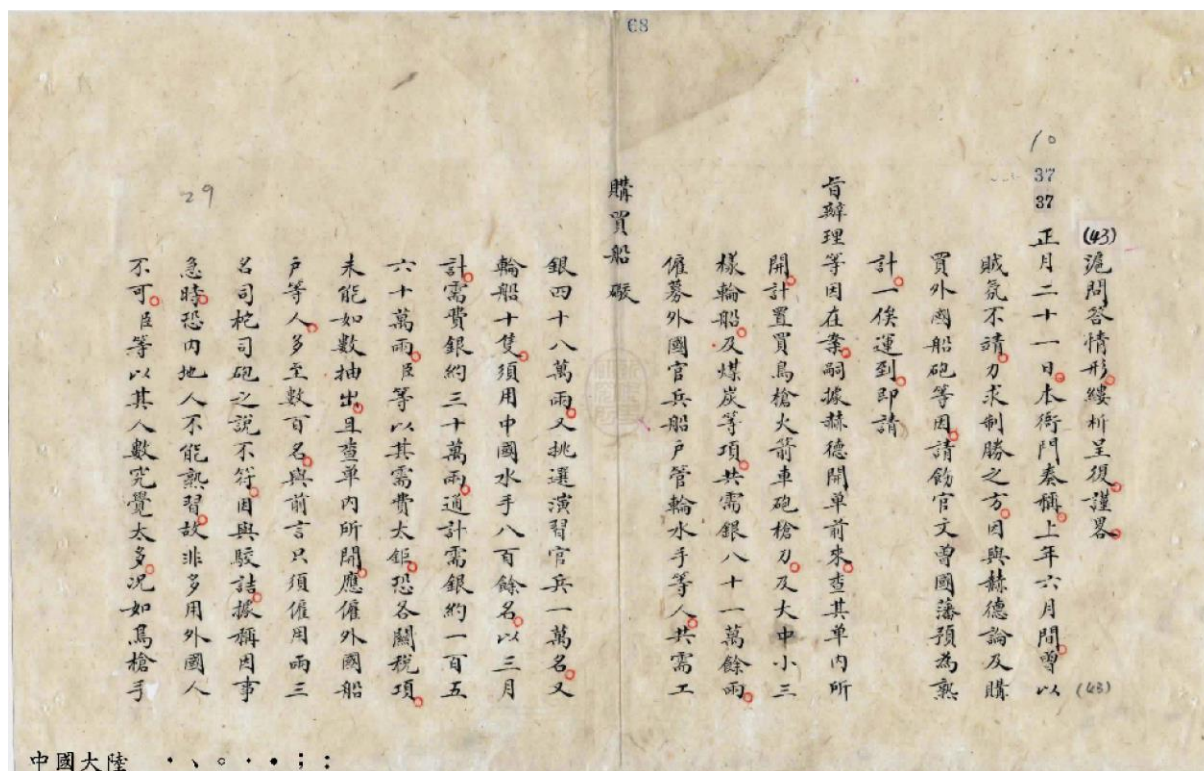 68
10
37
37
(43)滬問答情形縷析呈復謹畧
正月二十一日本衙門奏稱上年六月間曾以
(43)
賊氛不靖力求制勝之方因與赫德論及購
買外國船砲等因請飭官文曾國藩預為熟
計一俟運到即請
旨辦理等因在案嗣據赫德開單前來查其單內所
開計置買鳥槍火箭車砲槍刀及大中小三
樣輪船及煤炭等項共需銀八十一萬餘兩
僱募外國官兵船戶管輪水手等人共需工
購買船礮
銀四十八萬兩又挑選演習官兵一萬名又
輪船十隻須用中國水手八百餘名以三月
計需費銀約三十萬兩通計需銀約一百五
六十萬兩臣等以其需費太鉅恐各關稅項
未能如數抽出且查單內所開應僱外國船
戶等人多至數百名與前言只須僱用兩三
名司柁司砲之說不符因與駁詰據稱因事
29
急時恐內地人不能熟習故非多用外國人
不可臣等以其人數究覺太多況如鳥槍手
中國大陸 ・、。・●；：